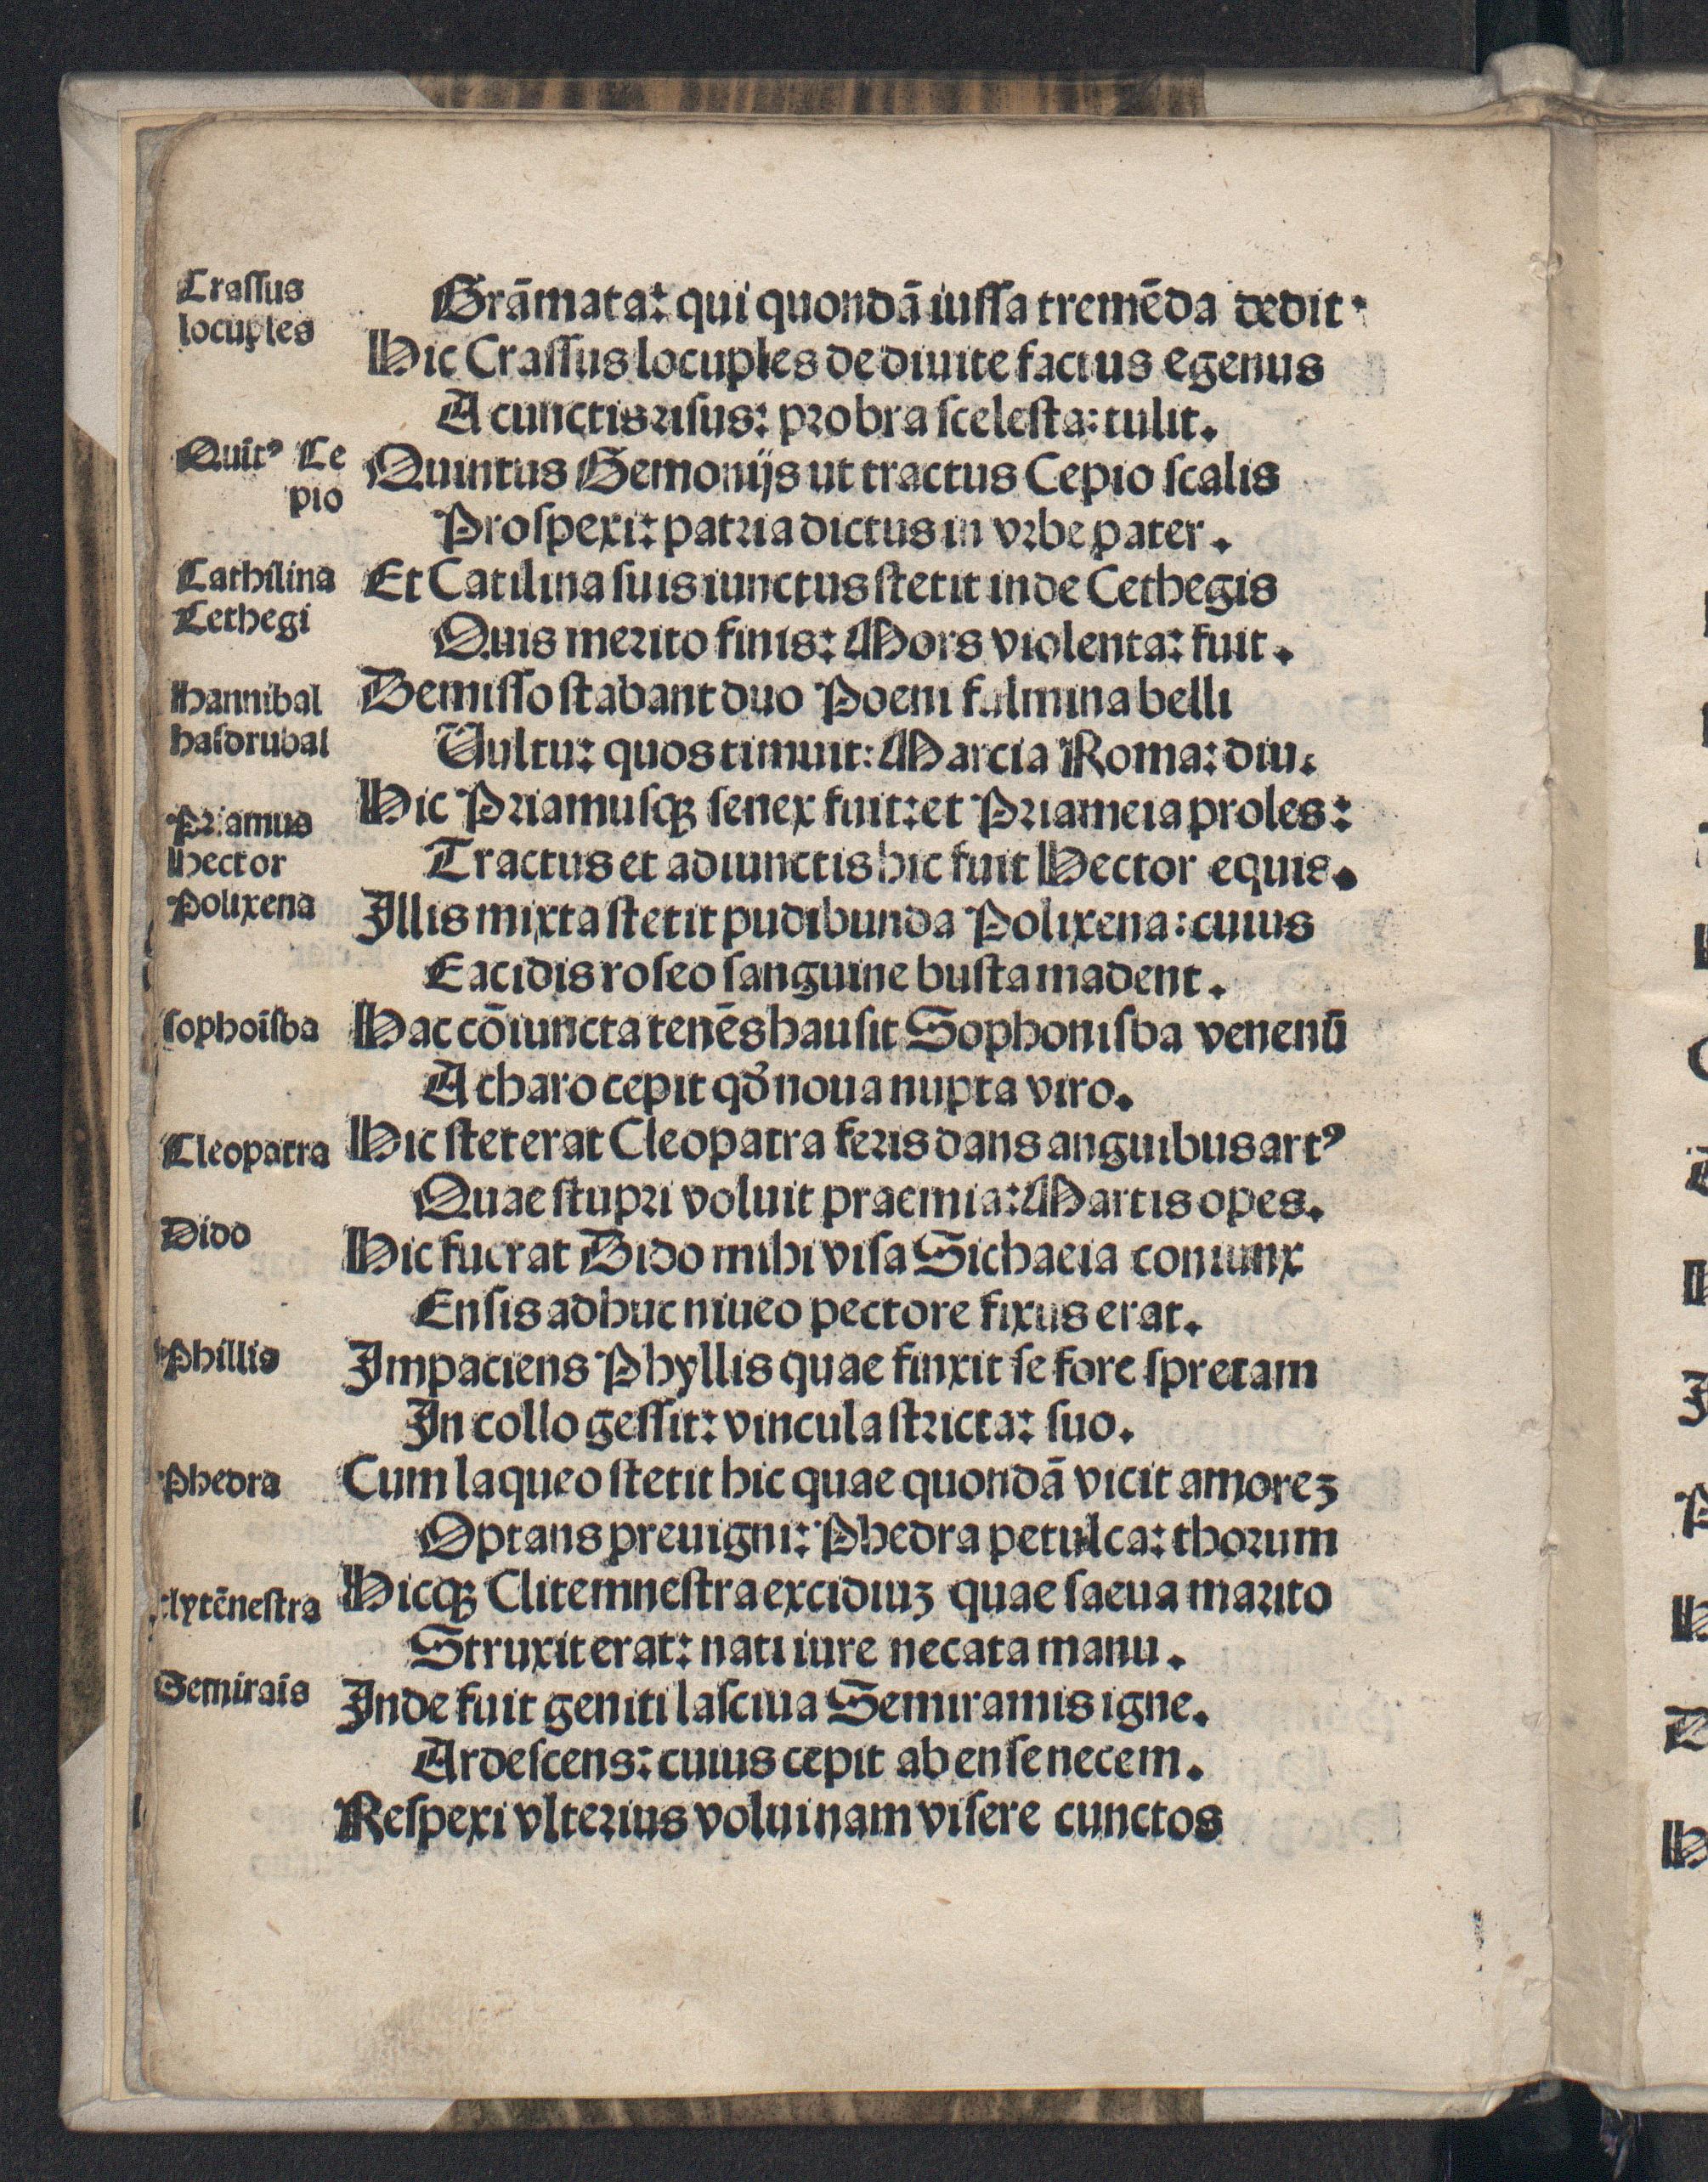 Crassus
locuples
Grāmata: qui quondā iussa tremēda dedit.
Hic Crassus locuples de diuite factus egenus
A cunctis risus: probra scelesta: tulit.
Quītꝰ Ce
pio
Quintus Gemonijs ut tractus Cepio scalis
Prospexi: patria dictus in vrbe pater.
Cathilina
Cethegi
Et Catilina suis iunctus stetit inde Cethegis
Quis merito finis: Mors violenta: fuit.
Hannibal
hasdrubal
Demisso stabant duo Poeni fulmina belli
Vultu: quos timuit: Marcia Roma: diu.
Priamus
Hector
Hic Priamusqꝫ senex fuit: et Priameia proles:
Tractus et adiunctis hic fuit Hector equis.
Polixena
Illis mixta stetit pudibunda Polixena: cuius
Eacidis roseo sanguine busta madent.
sophoīsba
Hac cōiuncta tenēs hausit Sophonisba venenū
A charo cepit qđ noua nupta viro.
Cleopatra
Hic steterat Cleopatra feris dans anguibus artꝰ
Quae stupri voluit praemia: Martis opes.
Dido
Hic fuerat Dido mihi visa Sichaeia coniunx
Ensis adhuc niueo pectore fixus erat.
Phillis
Impaciens Phyllis quae finxit se fore spretam
In collo gessit: vincula stricta: suo.
Phedra
Cum laqueo stetit hic quae quondā vicit amoreꝫ
Optans preuigni: Phedra petulca: thorum
clytēnestra
Hicqꝫ Clitemnestra excidiuꝫ quae saeua marito
Struxit erat: nati iure necata manu.
Semiraīs
Inde fuit geniti lasciua Semiramis igne.
Ardescens: cuius cepit ab ense necem.
Respexi vlterius volui nam visere cunctos